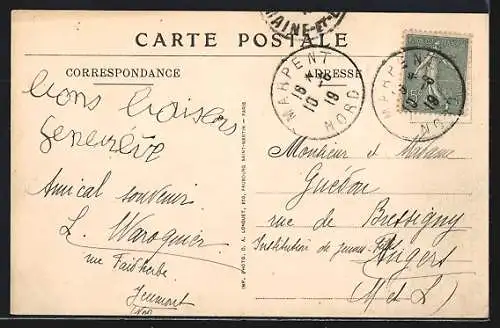 MAINE-ET-L
CARTE POSTALE
CORRESPONDANCE
ADRESSE
MARPENT
18
10 19
NORD
MARPENT
10 19
NORD
bons baisers
Geneviève
Amical souvenir
L. Waroquier
rue Faidherbe
Jeumont
(Nord)
IMP. PHOTO. D. A. LONGUET, 250, FAUBOURG SAINT-MARTIN - PARIS
Monsieur et Madame
Guédon
rue de Bressigny
Institution de jeunes filles
Angers
(M et L)